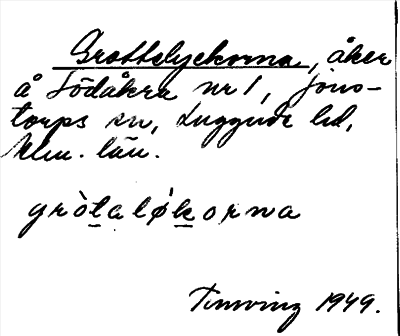 Grottelyckorna, åker
å Södåkra nr 1, Jons-
torps sn, Luggude hd,
Klm. län.
gròtaløkorna
Tinwing 1949.